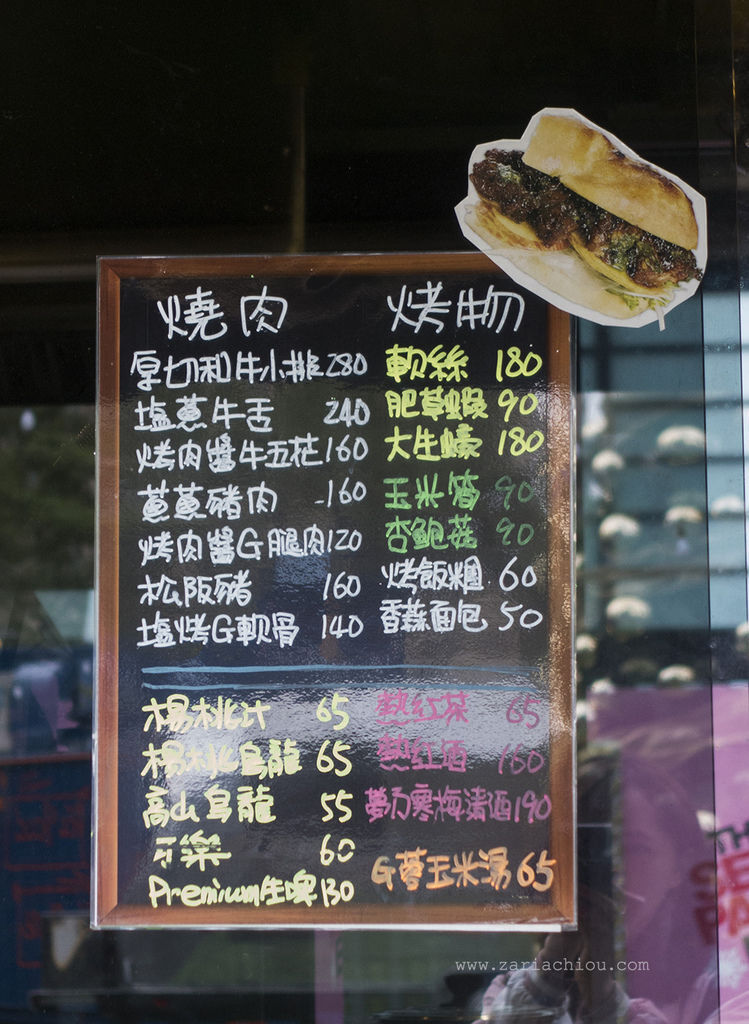 燒肉
厚切和牛小排280
塩蔥牛舌 240
烤肉醬牛五花160
蔥蔥豬肉 160
烤肉醬G腿肉120
松阪豬 160
塩烤G軟骨 140
烤物
軟絲 180
肥草蝦 90
大生蠔 180
玉米筍 90
杏鮑菇 90
烤飯糰 60
香蒜面包 50
楊桃汁 65
楊桃烏龍 65
高山烏龍 55
可樂 60
Premium生啤130
熱紅茶 65
熱紅酒 160
夢乃寒梅清酒190
G蓉玉米湯65
www.zariachiou.com